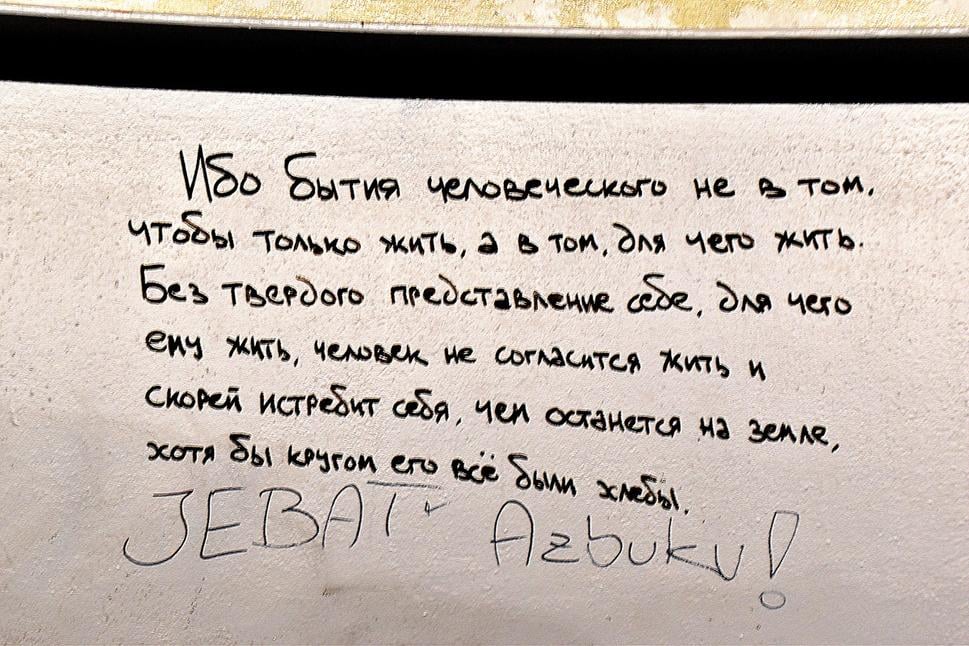 Ибо бытия человеческого не в том,
чтобы только жить, а в том, для чего жить.
Без твердого представление себе, для чего
ему жить, человек не согласится жить и
скорей истребит себя, чем останется на земле,
хотя бы кругом его всё были хлебы.
JEBAT' Azbuku!